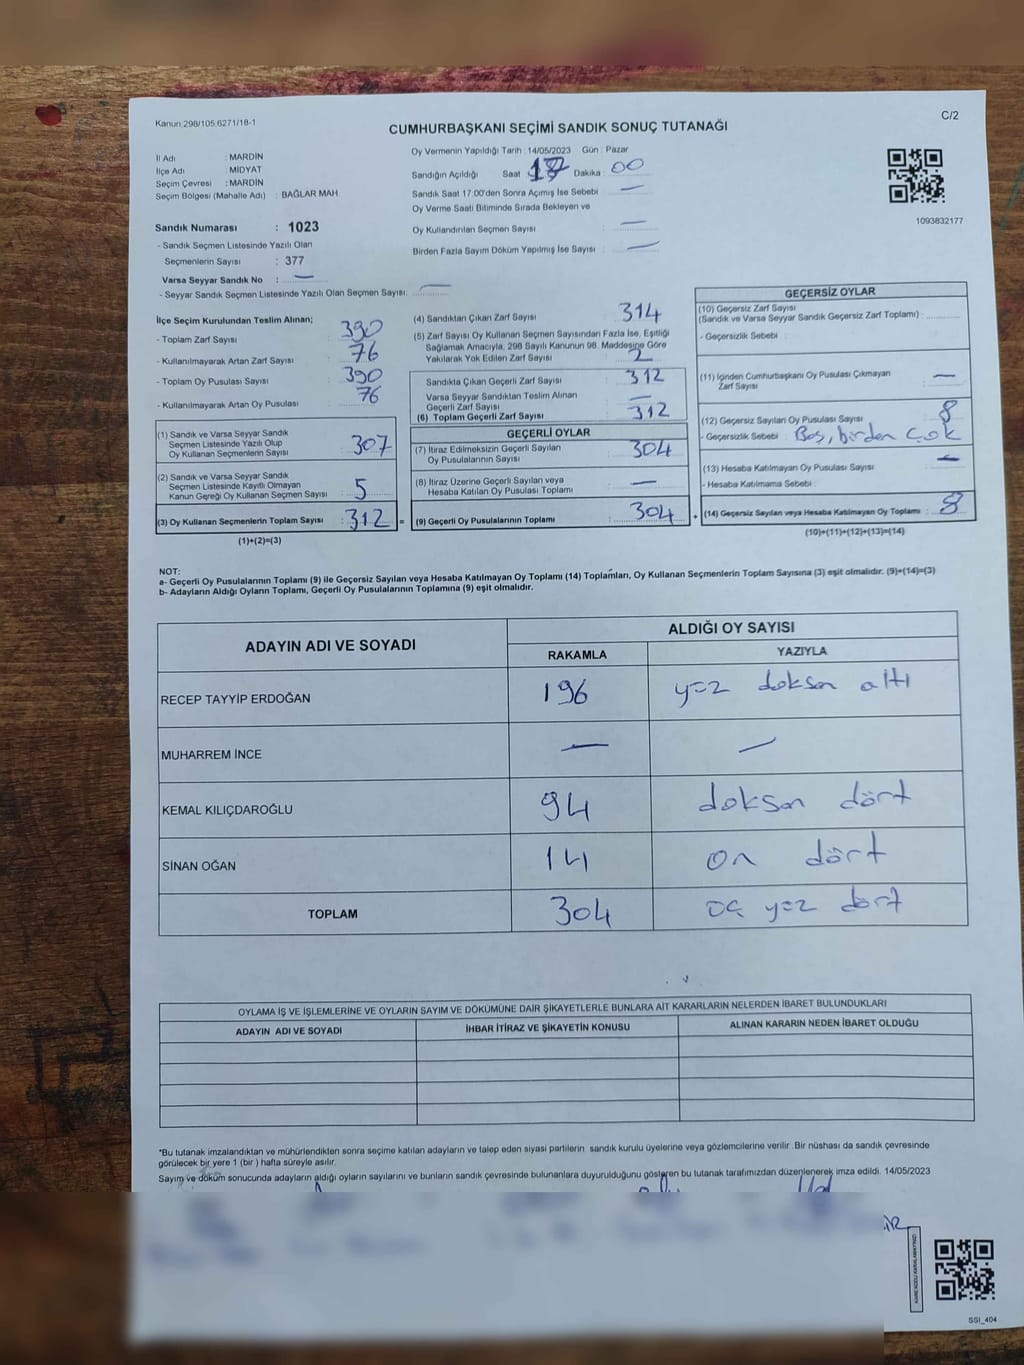 Kanun:298/105,6271/18-1
C/2
CUMHURBAŞKANI SEÇİMİ SANDIK SONUÇ TUTANAĞI
İl Adı : MARDİN
İlçe Adı : MİDYAT
Seçim Çevresi : MARDİN
Seçim Bölgesi (Mahalle Adı) : BAĞLAR MAH
Sandık Numarası : 1023
- Sandık Seçmen Listesinde Yazılı Olan
Seçmenlerin Sayısı : 377
Varsa Seyyar Sandık No : —
- Seyyar Sandık Seçmen Listesinde Yazılı Olan Seçmen Sayısı: —
Oy Vermenin Yapıldığı Tarih : 14/05/2023 Gün : Pazar
Sandığın Açıldığı Saat : 17 Dakika : 00
Sandık Saat 17:00'den Sonra Açımış İse Sebebi : —
Oy Verme Saati Bitiminde Sırada Bekleyen ve
Oy Kullandırılan Seçmen Sayısı : —
Birden Fazla Sayım Döküm Yapılmış İse Sayısı : —
1093832177
İlçe Seçim Kurulundan Teslim Alınan;
- Toplam Zarf Sayısı : 390
- Kullanılmayarak Artan Zarf Sayısı : 76
- Toplam Oy Pusulası Sayısı : 390
- Kullanılmayarak Artan Oy Pusulası : 76
(1) Sandık ve Varsa Seyyar Sandık
Seçmen Listesinde Yazılı Olup
Oy Kullanan Seçmenlerin Sayısı : 307
(2) Sandık ve Varsa Seyyar Sandık
Seçmen Listesinde Kayıtlı Olmayan
Kanun Gereği Oy Kullanan Seçmen Sayısı : 5
(3) Oy Kullanan Seçmenlerin Toplam Sayısı : 312 =
(1)+(2)=(3)
(4) Sandıktan Çıkan Zarf Sayısı : 314
(5) Zarf Sayısı Oy Kullanan Seçmen Sayısından Fazla İse, Eşitliği
Sağlamak Amacıyla, 298 Sayılı Kanunun 98. Maddesine Göre
Yakılarak Yok Edilen Zarf Sayısı : 2
Sandıkta Çıkan Geçerli Zarf Sayısı : 312
Varsa Seyyar Sandıktan Teslim Alınan
Geçerli Zarf Sayısı : —
(6) Toplam Geçerli Zarf Sayısı : 312
GEÇERLİ OYLAR
(7) İtiraz Edilmeksizin Geçerli Sayılan
Oy Pusulalarının Sayısı : 304
(8) İtiraz Üzerine Geçerli Sayılan veya
Hesaba Katılan Oy Pusulası Toplamı : —
(9) Geçerli Oy Pusulalarının Toplamı : 304 +
GEÇERSİZ OYLAR
(10) Geçersiz Zarf Sayısı
(Sandık ve Varsa Seyyar Sandık Geçersiz Zarf Toplamı) :
- Geçersizlik Sebebi :
(11) İçinden Cumhurbaşkanı Oy Pusulası Çıkmayan
Zarf Sayısı : —
(12) Geçersiz Sayılan Oy Pusulası Sayısı : 8
- Geçersizlik Sebebi : Boş, birden çok
(13) Hesaba Katılmayan Oy Pusulası Sayısı : —
- Hesaba Katılmama Sebebi :
(14) Geçersiz Sayılan veya Hesaba Katılmayan Oy Toplamı : 8
(10)+(11)+(12)+(13)=(14)
NOT:
a- Geçerli Oy Pusulalarının Toplamı (9) ile Geçersiz Sayılan veya Hesaba Katılmayan Oy Toplamı (14) Toplamları, Oy Kullanan Seçmenlerin Toplam Sayısına (3) eşit olmalıdır. (9)+(14)=(3)
b- Adayların Aldığı Oyların Toplamı, Geçerli Oy Pusulalarının Toplamına (9) eşit olmalıdır.
ADAYIN ADI VE SOYADI
ALDIĞI OY SAYISI
RAKAMLA YAZIYLA
RECEP TAYYİP ERDOĞAN 196 yüz doksan altı
MUHARREM İNCE — —
KEMAL KILIÇDAROĞLU 94 doksan dört
SİNAN OĞAN 14 on dört
TOPLAM 304 üç yüz dört
OYLAMA İŞ VE İŞLEMLERİNE VE OYLARIN SAYIM VE DÖKÜMÜNE DAİR ŞİKAYETLERLE BUNLARA AİT KARARLARIN NELERDEN İBARET BULUNDUKLARI
ADAYIN ADI VE SOYADI İHBAR İTİRAZ VE ŞİKAYETİN KONUSU ALINAN KARARIN NEDEN İBARET OLDUĞU
*Bu tutanak imzalandıktan ve mühürlendikten sonra seçime katılan adayların ve talep eden siyasi partilerin sandık kurulu üyelerine veya gözlemcilerine verilir. Bir nüshası da sandık çevresinde
görülecek bir yere 1 (bir ) hafta süreyle asılır.
Sayım ve döküm sonucunda adayların aldığı oyların sayılarını ve bunların sandık çevresinde bulunanlara duyurulduğunu gösteren bu tutanak tarafımızdan düzenlenerek imza edildi. 14/05/2023
SSI_404